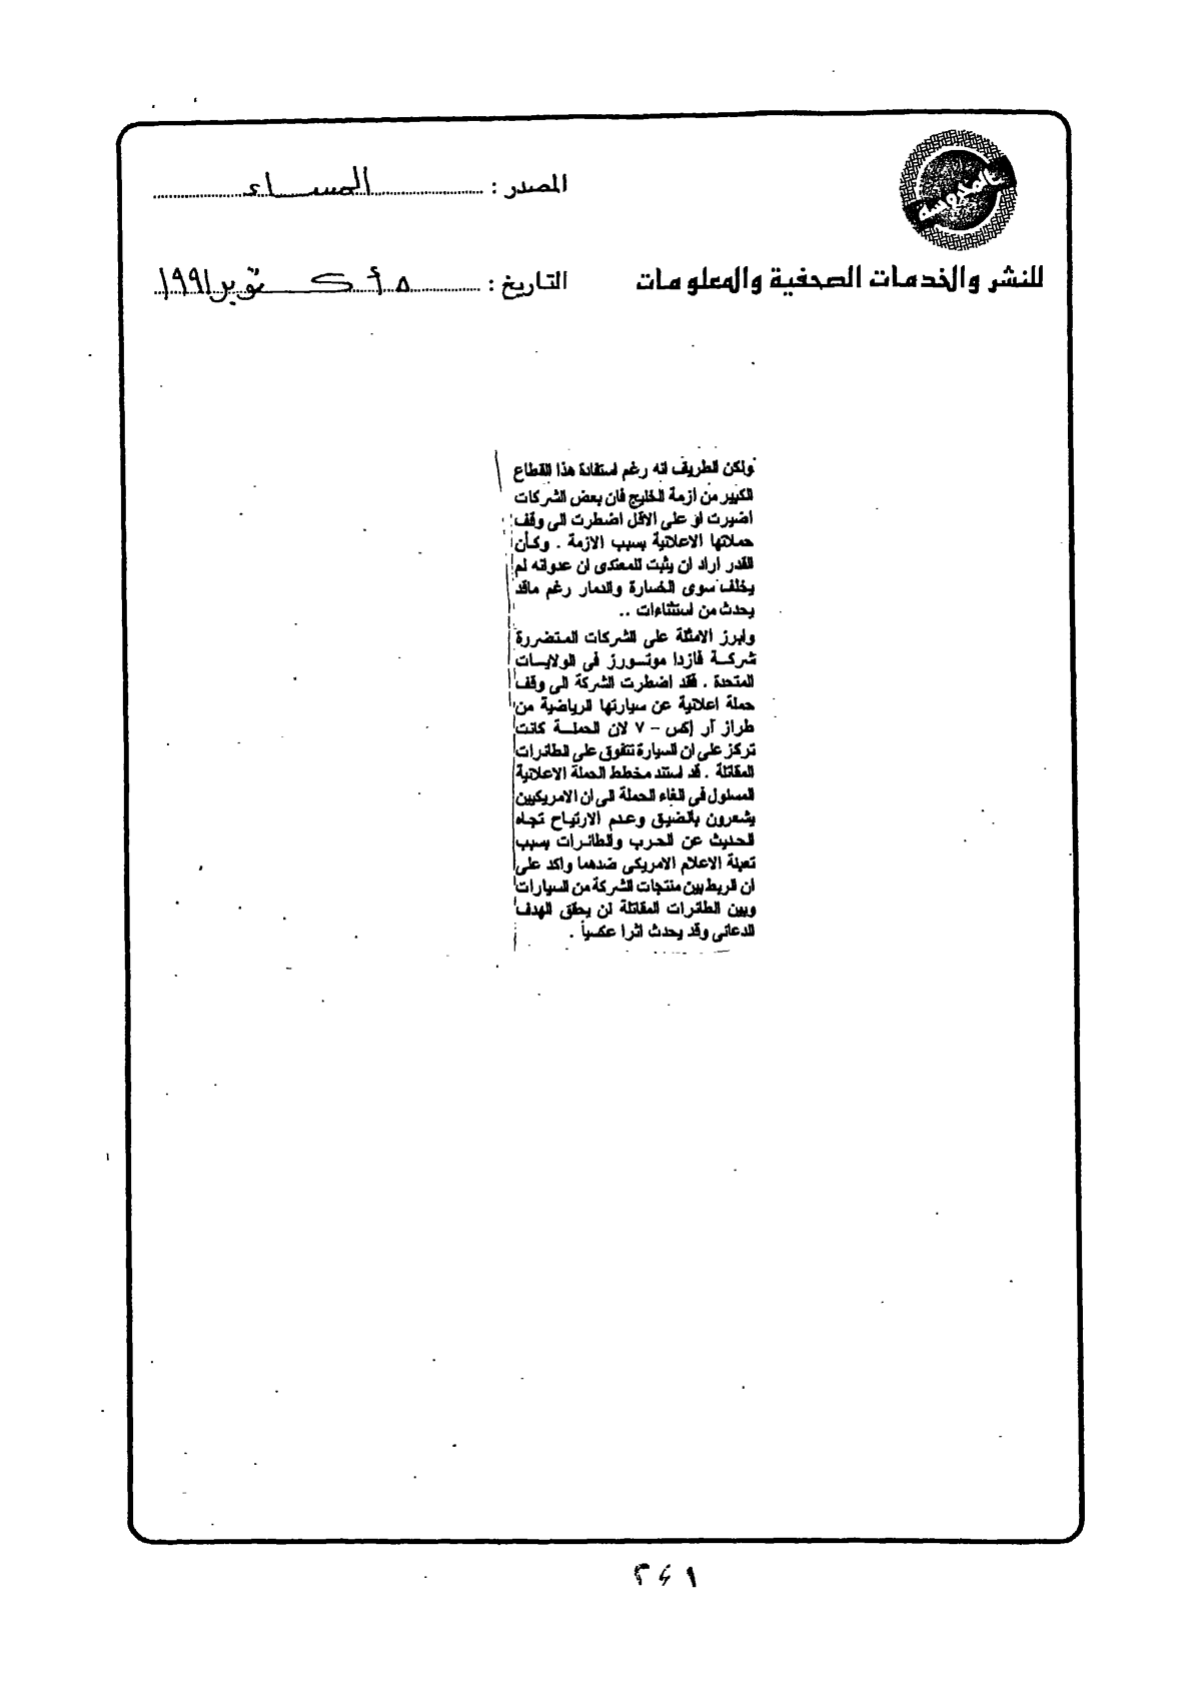 المحروسة
للنشر والخدمات الصحفية والمعلومات
المصدر : المساء
التاريخ : ٥ أكتوبر ١٩٩١
ولكن الطريف انه رغم استفادة هذا القطاع
الكبير من ازمة الخليج فان بعض الشركات
اضيرت او على الاقل اضطرت الى وقف
حملاتها الاعلانية بسبب الازمة . وكأن
القدر اراد ان يثبت للمعتدى ان عدوانه لم
يخلف سوى الخسارة والدمار رغم ماقد
يحدث من استثناءات ..
وابرز الامثلة على الشركات المتضررة
شركة فازدا موتورز فى الولايات
المتحدة . فقد اضطرت الشركة الى وقف
حملة اعلانية عن سيارتها الرياضية من
طراز آر إكس - ٧ لان الحملة كانت
تركز على ان السيارة تتفوق على الطائرات
المقاتلة . قد استند مخطط الحملة الاعلانية
المسئول فى الغاء الحملة الى ان الامريكيين
يشعرون بالضيق وعدم الارتياح تجاه
الحديث عن الحرب والطائرات بسبب
تعبئة الاعلام الامريكى ضدهما واكد على
ان الربط بين منتجات الشركة من السيارات
وبين الطائرات المقاتلة لن يحقق الهدف
الدعائى وقد يحدث اثرا عكسياً .
٢٤١